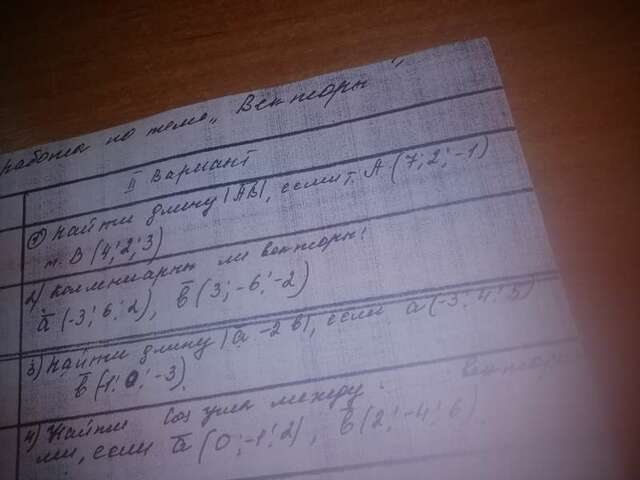 работа по теме „ Векторы "
II Вариант
1) Найти длину |AB|, если т. A (7; 2; -1)
т. B (4; 2; 3)
2) Коллинеарны ли векторы:
a (-3; 6; 2), b (3; -6; -2)
3) Найти длину |a - 2b|, если a (-3; 4; 5)
b (-1; 0; -3).
4) Найти Cos угла между векторами
ми, если a (0; -1; 2), b (2; -4; 6).